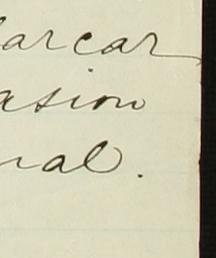 arcar
asion
nal.